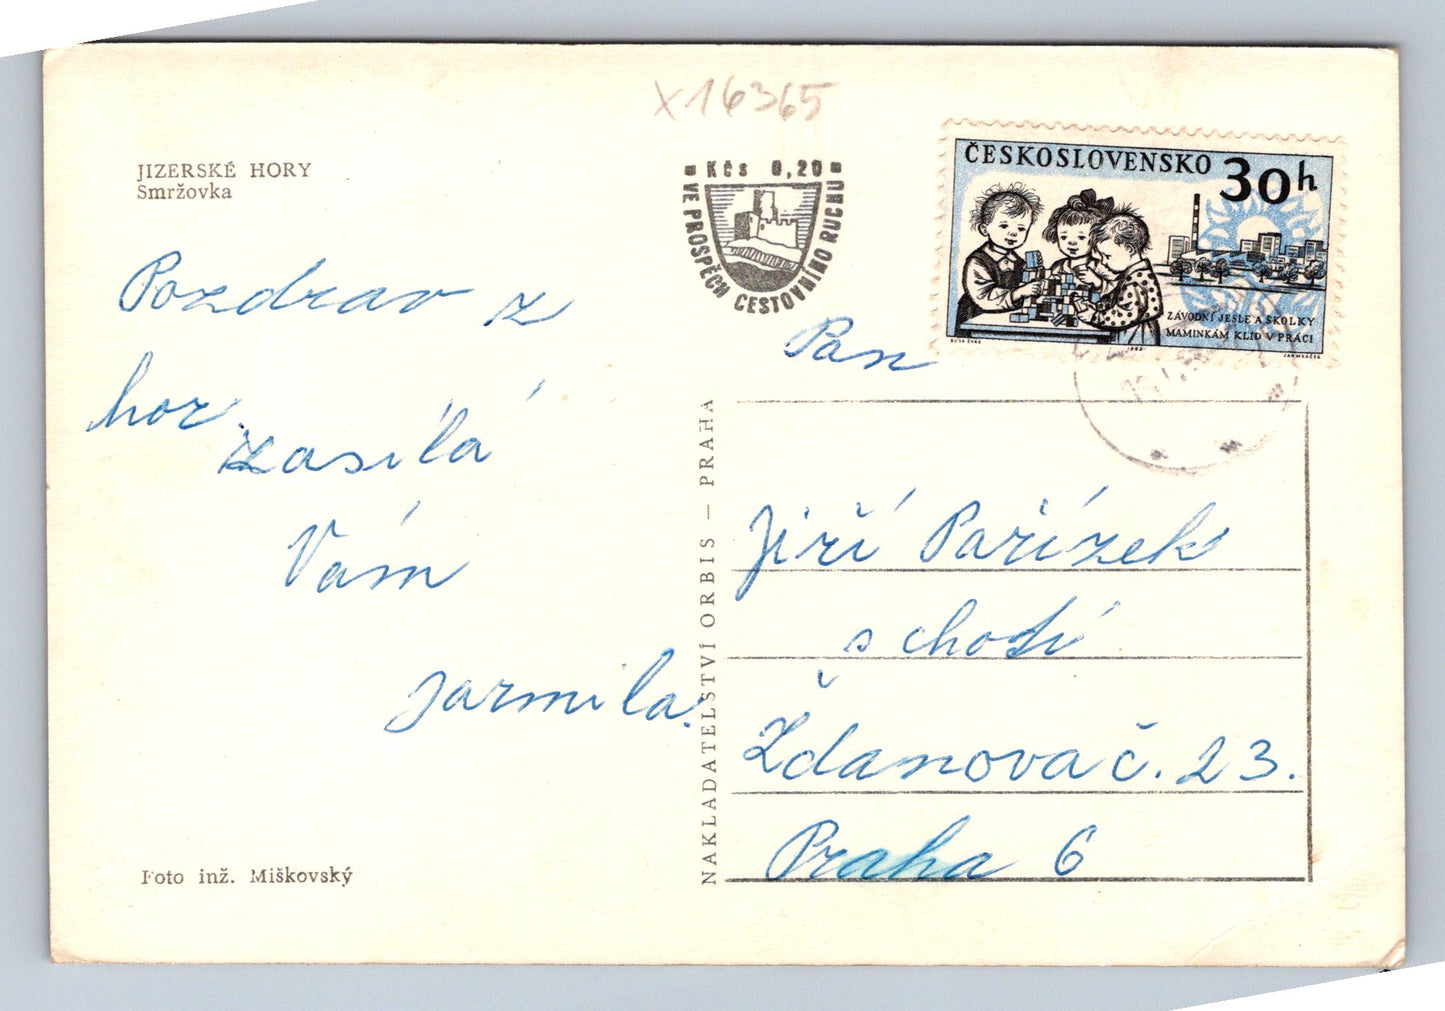 X16365
JIZERSKÉ HORY
Smržovka
Kčs 0,20
VE PROSPĚCH CESTOVNÍHO RUCHU
ČESKOSLOVENSKO 30h
ZÁVODNÍ JESLE A ŠKOLKY
MAMINKÁM KLID V PRÁCI
1963
Pozdrav z
hor.
zasílá
Vám
Jarmila.
Foto inž. Miškovský
NAKLADATELSTVÍ ORBIS — PRAHA
Pan
Jiří Pařízek
s chotí
Ždanova č. 23.
Praha 6